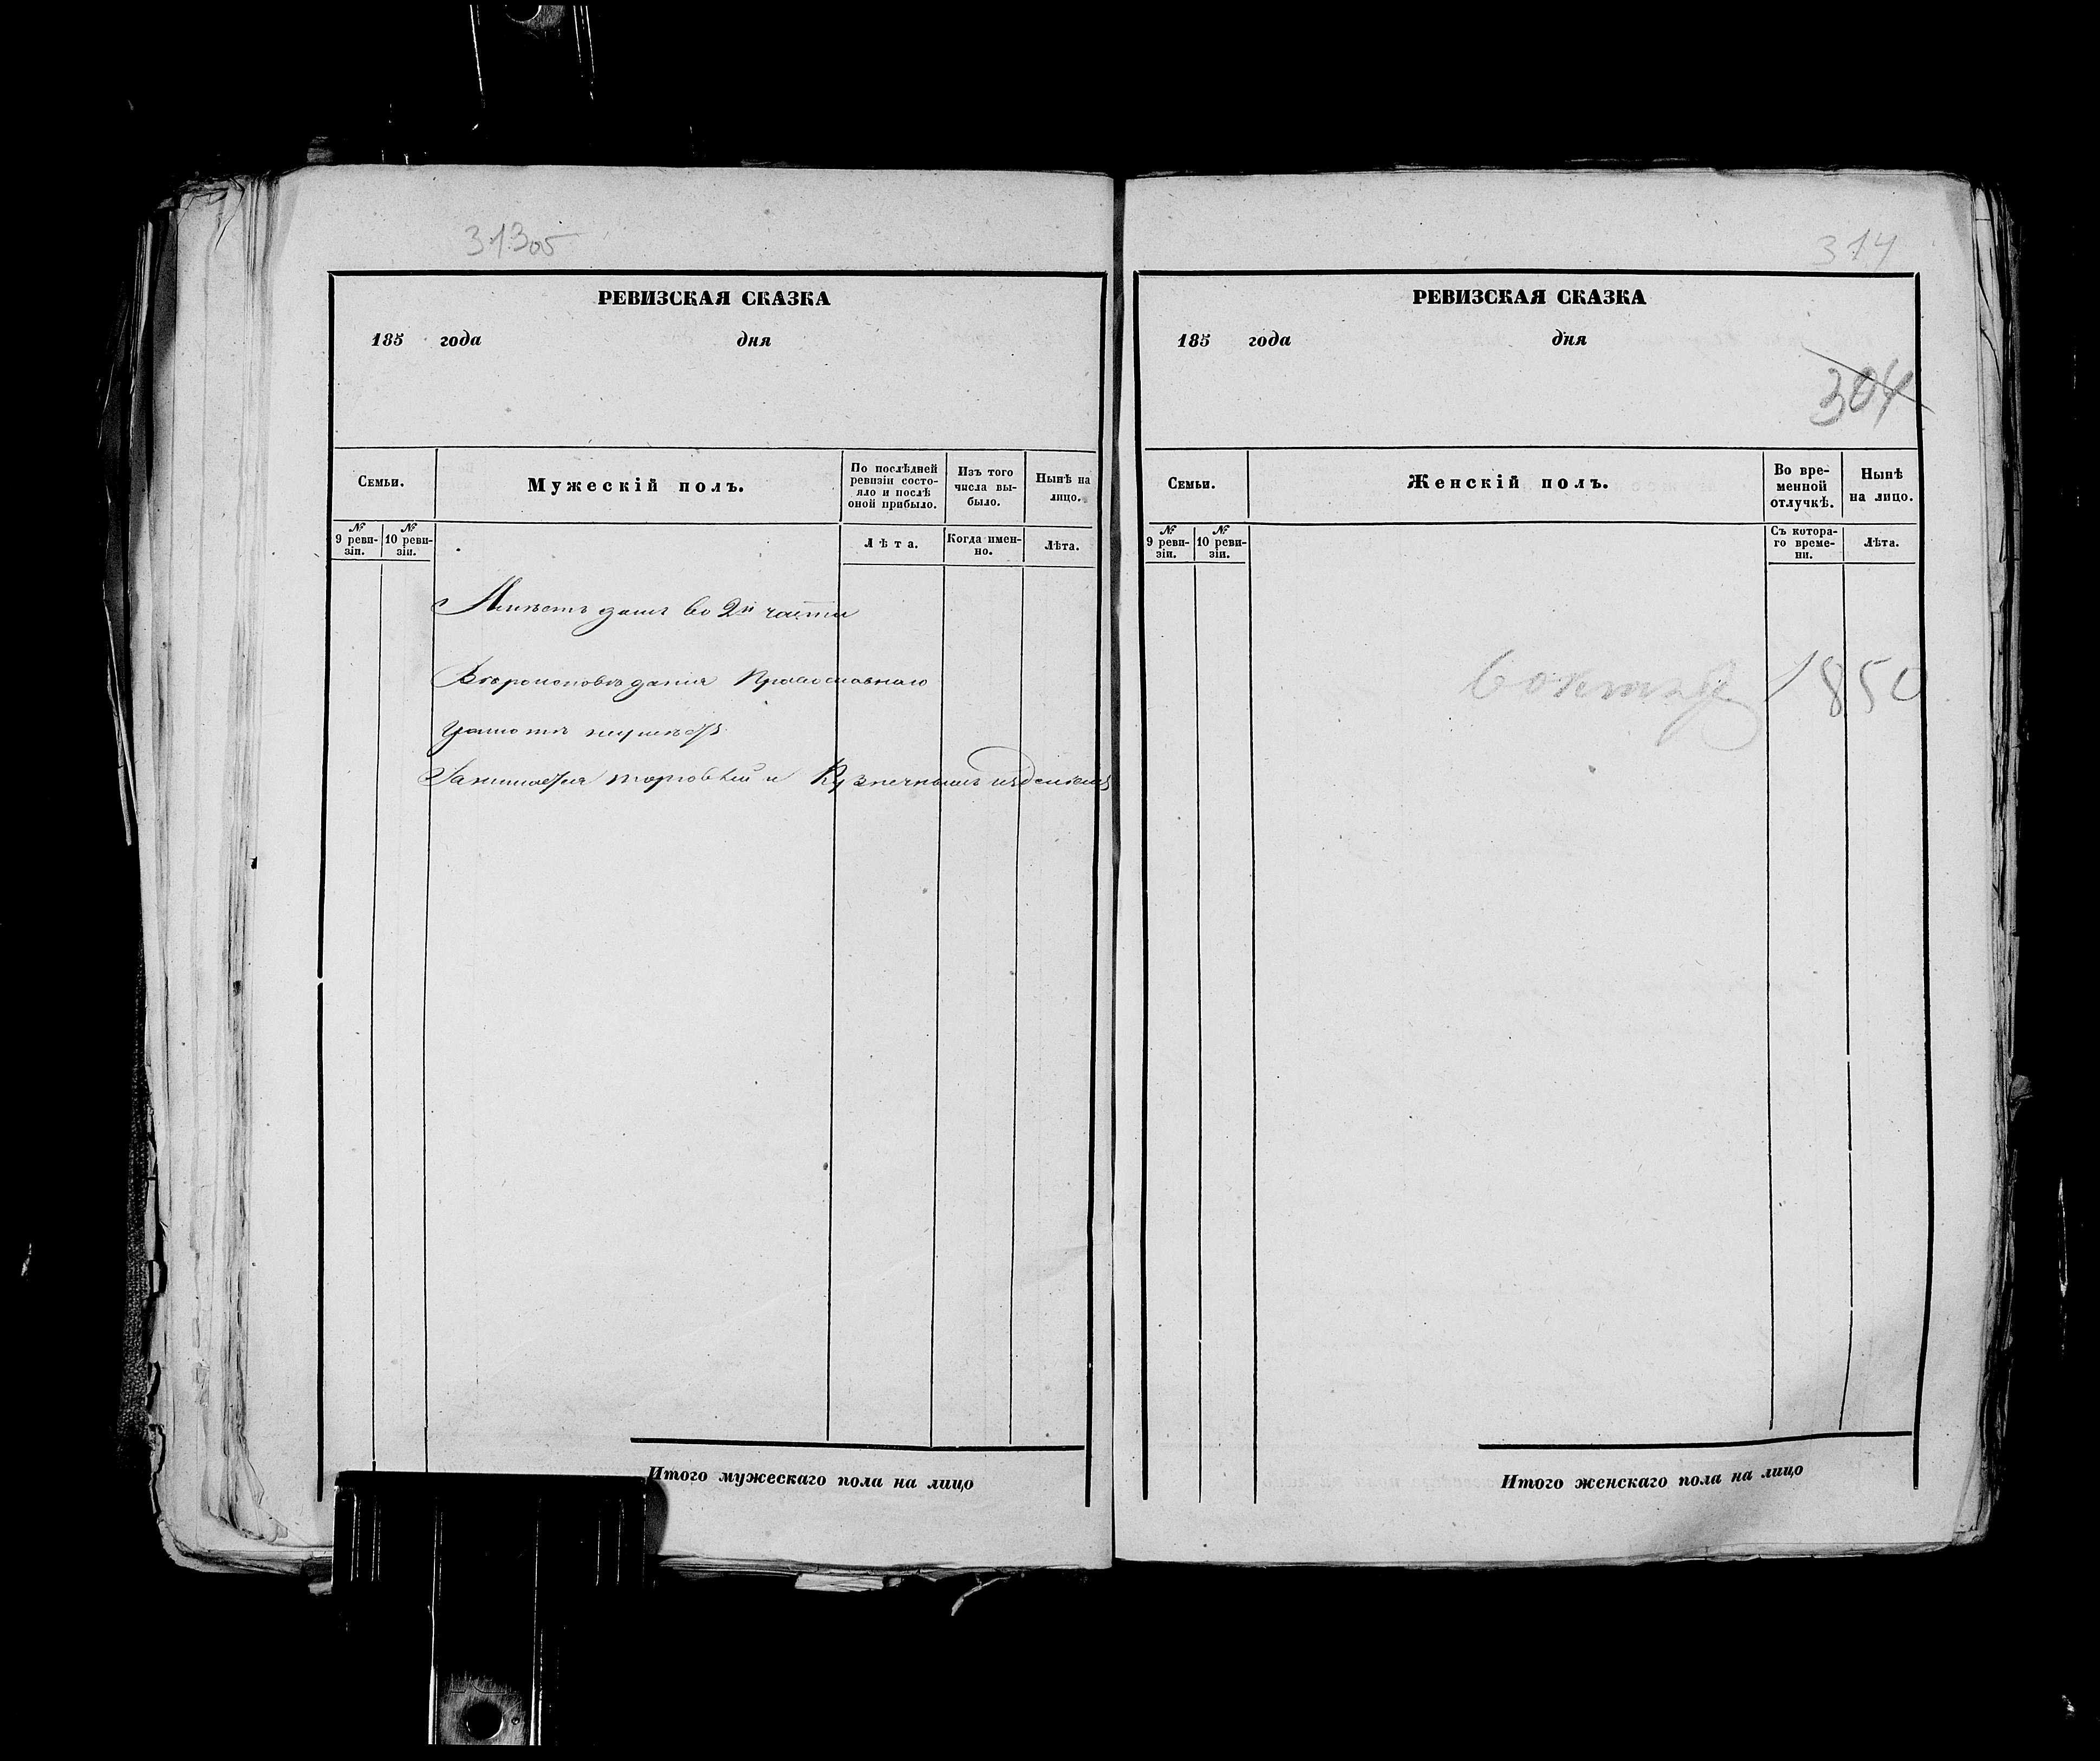 313об
РЕВИЗСКАЯ СКАЗКА
185 года дня
Семьи.
Мужескій полъ.
По послѣдней ревизіи состо-
яло и послѣ
оной прибыло.
Изъ того
числа вы-
было.
Нынѣ на
лицо.
№
9 реви-
зіи.
№
10 реви-
зіи.
Лѣта.
Когда имен-
но.
Лѣта.
Имѣетъ домъ во 2й части
Вѣроисповѣданія Православнаго
Грамотѣ неумѣетъ
Занимается торговлей и Кузнечнымъ издѣліемъ
Итого мужескаго пола на лицо
314
РЕВИЗСКАЯ СКАЗКА
185 года дня
304
Семьи.
Женскій полъ.
Во вре-
менной
отлучкѣ.
Нынѣ
на лицо.
№
9 реви-
зіи.
№
10 реви-
зіи.
Съ котора-
го време-
ни.
Лѣта.
1850
Итого женскаго пола на лицо